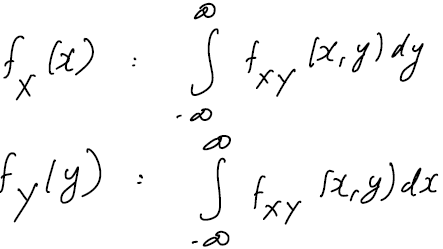 f_X(x) : ∫_{-∞}^{∞} f_{XY}(x,y)dy
f_Y(y) : ∫_{-∞}^{∞} f_{XY}(x,y)dx